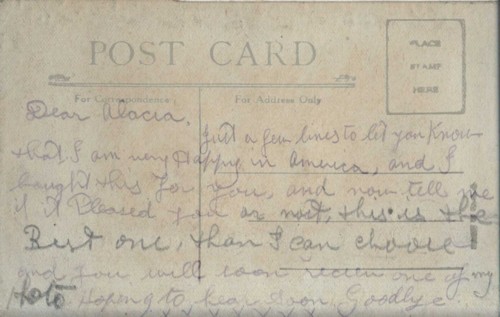 POST CARD
PLACE
STAMP
HERE
For Correspondence
For Address Only
Dear Alacia,
Just a few lines to let you Know
that I am very Happy in America, and I
bought this For you, and now tell me
if it Pleased you or not, this is the
Best one, than I can choose
and you will soon recien one of my
Hoto Hoping to hear soon Goodbye.